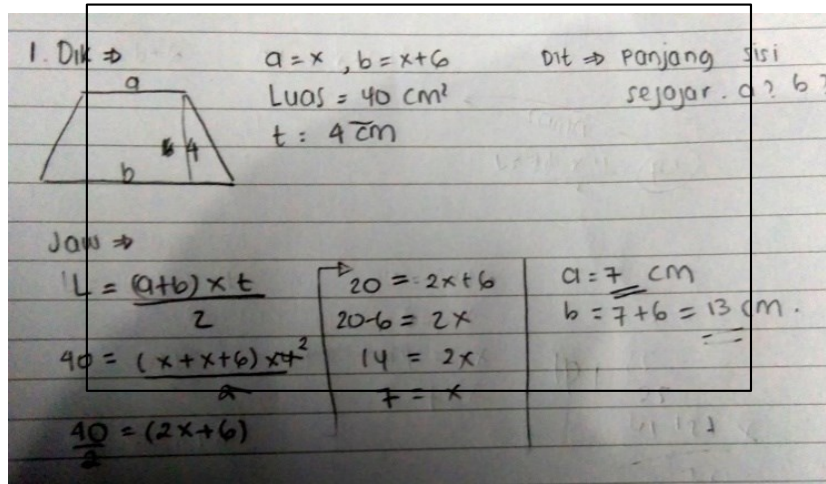 1. Dik ⇒
a = x , b = x+6
Luas = 40 cm²
t : 4 cm
Dit ⇒ Panjang sisi
sejajar. a? b?
a
4
b
Jaw ⇒
L = (a+b) x t
2
40 = (x+x+6) x 4 2
2
40 = (2x+6)
2
20 = 2x+6
20-6 = 2x
14 = 2x
7 = x
a = 7 cm
b = 7+6 = 13 cm.